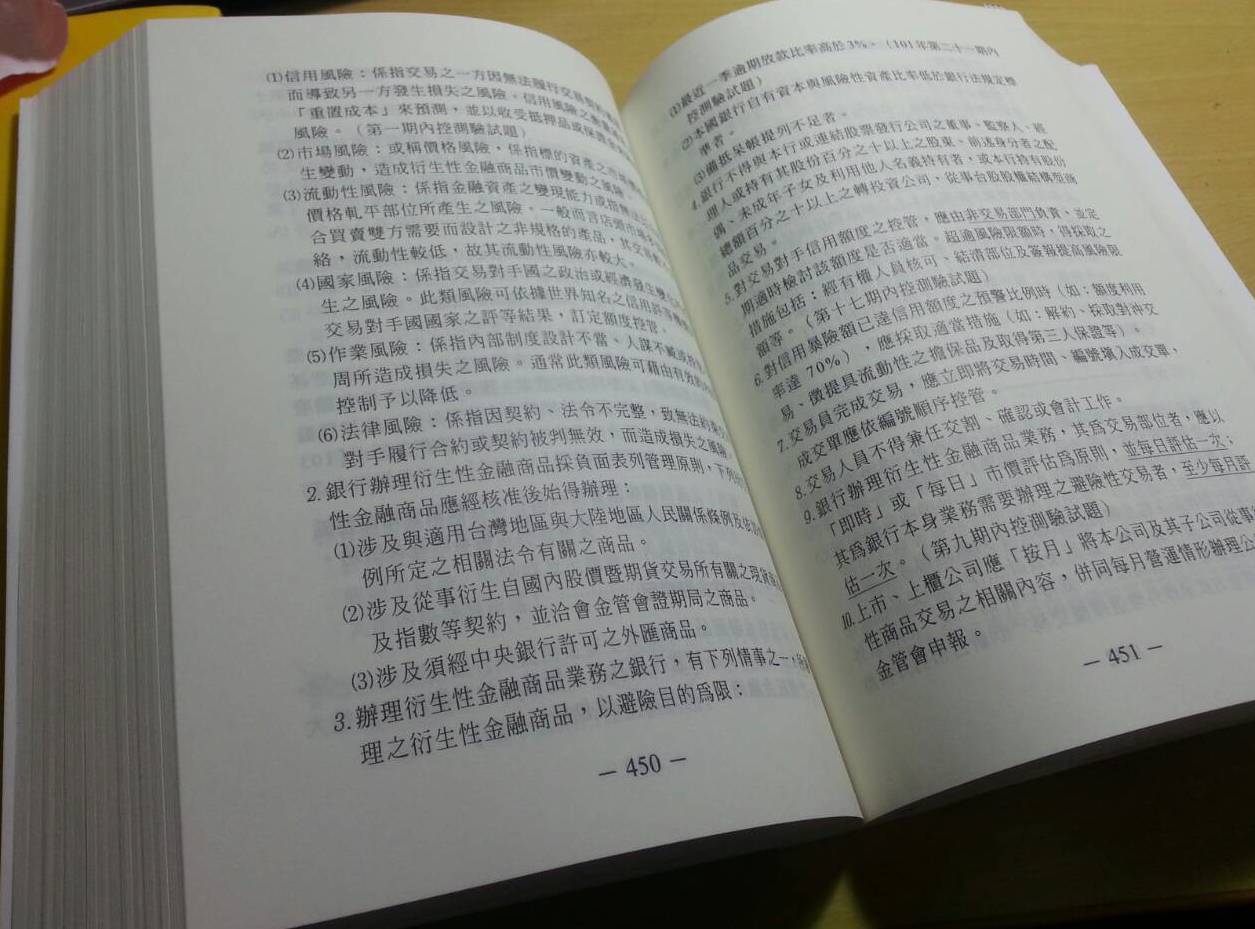 (1)信用風險：係指交易之一方因無法履行交易契約
而導致另一方發生損失之風險。信用風險之衡量
「重置成本」來預測，並以收受抵押品或保證金
風險。（第一期內控測驗試題）
(2)市場風險：或稱價格風險，係指標的資產之市場
生變動，造成衍生性金融商品市價變動之風險
(3)流動性風險：係指金融資產之變現能力或指無法
價格軋平部位所產生之風險。一般而言店頭市場
合買賣雙方需要而設計之非規格的產品，其交易
絡，流動性較低，故其流動性風險亦較大。
(4)國家風險：係指交易對手國之政治或經濟發生變化
生之風險。此類風險可依據世界知名之信用評等機構
交易對手國國家之評等結果，訂定額度控管。
(5)作業風險：係指內部制度設計不當、人謀不臧或
周所造成損失之風險。通常此類風險可藉由有效的
控制予以降低。
(6)法律風險：係指因契約、法令不完整，致無法約束交
對手履行合約或契約被判無效，而造成損失之風險。
2.銀行辦理衍生性金融商品採負面表列管理原則，下列
性金融商品應經核准後始得辦理：
(1)涉及與適用台灣地區與大陸地區人民關係條例及依
例所定之相關法令有關之商品。
(2)涉及從事衍生自國內股價暨期貨交易所有關之現貨
及指數等契約，並洽會金管會證期局之商品。
(3)涉及須經中央銀行許可之外匯商品。
3.辦理衍生性金融商品業務之銀行，有下列情事之一，
理之衍生性金融商品，以避險目的為限：
— 450 —
(1)最近一季逾期放款比率高於3%。（101年第二十一期內
控測驗試題）
(2)本國銀行自有資本與風險性資產比率低於銀行法規定標
準者。
(3)備抵呆帳提列不足者。
4.銀行不得與本行或連結股票發行公司之董事、監察人、經
理人或持有其股份百分之十以上之股東、前述身分者之配
偶、未成年子女及利用他人名義持有者，或本行持有股份
總額百分之十以上之轉投資公司，從事台股股權結構型商
品交易。
5.對交易對手信用額度之控管，應由非交易部門負責，並定
期適時檢討該額度是否適當。超逾風險限額時，得採取之
措施包括：經有權人員核可、結清部位及簽報提高風險限
額等。（第十七期內控測驗試題）
6.對信用暴險額已達信用額度之預警比例時（如：額度利用
率達 70%），應採取適當措施（如：解約、採取對沖交
易、徵提具流動性之擔保品及取得第三人保證等）。
7.交易員完成交易，應立即將交易時間、編號填入成交單，
成交單應依編號順序控管。
8.交易人員不得兼任交割、確認或會計工作。
9.銀行辦理衍生性金融商品業務，其為交易部位者，應以
「即時」或「每日」市價評估為原則，並每日評估一次；
其為銀行本身業務需要辦理之避險性交易者，至少每月評
估一次。（第九期內控測驗試題）
10.上市、上櫃公司應「按月」將本公司及其子公司從事
性商品交易之相關內容，併同每月營運情形辦理公
金管會申報。
— 451 —